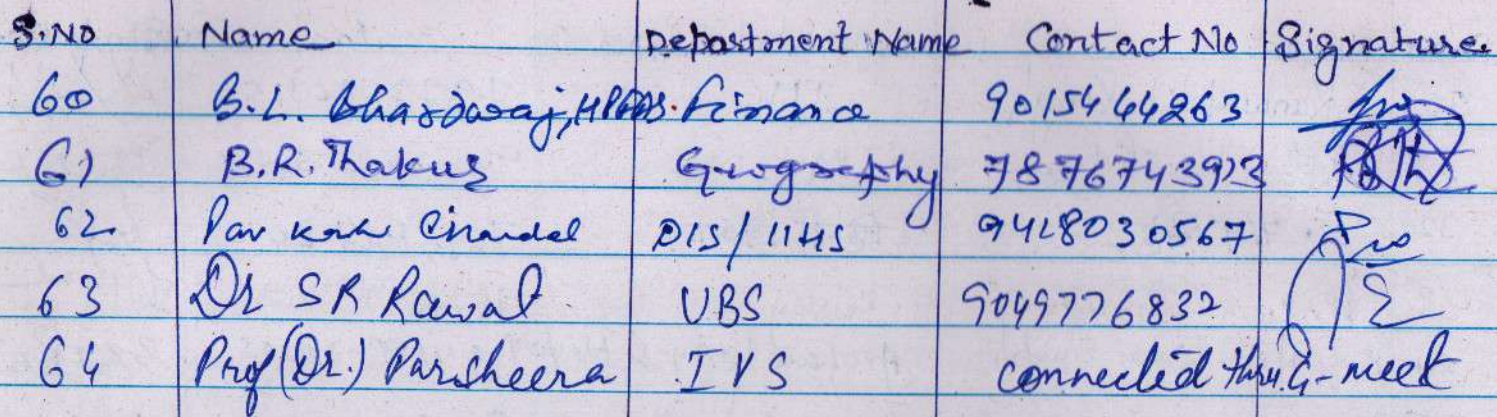 S.No Name Department Name Contact No Signature
60 B.L. Bhardwaj, HPF&AS. Finance 9015464263
61 B.R. Thakur Geography 7876743913
62 Par kash Chandel DIS/IIHS 9418030567
63 Dr SR Rawal UBS 9049776832
64 Prof (Dr.) Parsheera IVS connected thru. G-meet